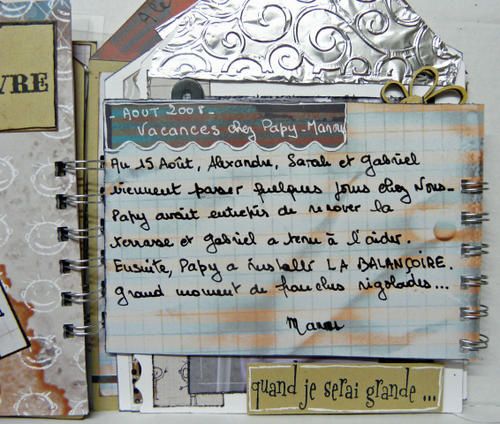 IVRE
Ale
- AOUT 2008 -
Vacances chez Papy-Manou
Au 15 Août, Alexandre, Sarah et Gabriel
viennent passer quelques jours chez Nous-
Papy avait entrepris de renover la
terrasse et Gabriel a tenu à l'aider.
Ensuite, Papy a installé LA BALANÇOIRE.
Grand moment de franches rigolades...
Manou
quand je serai grande...